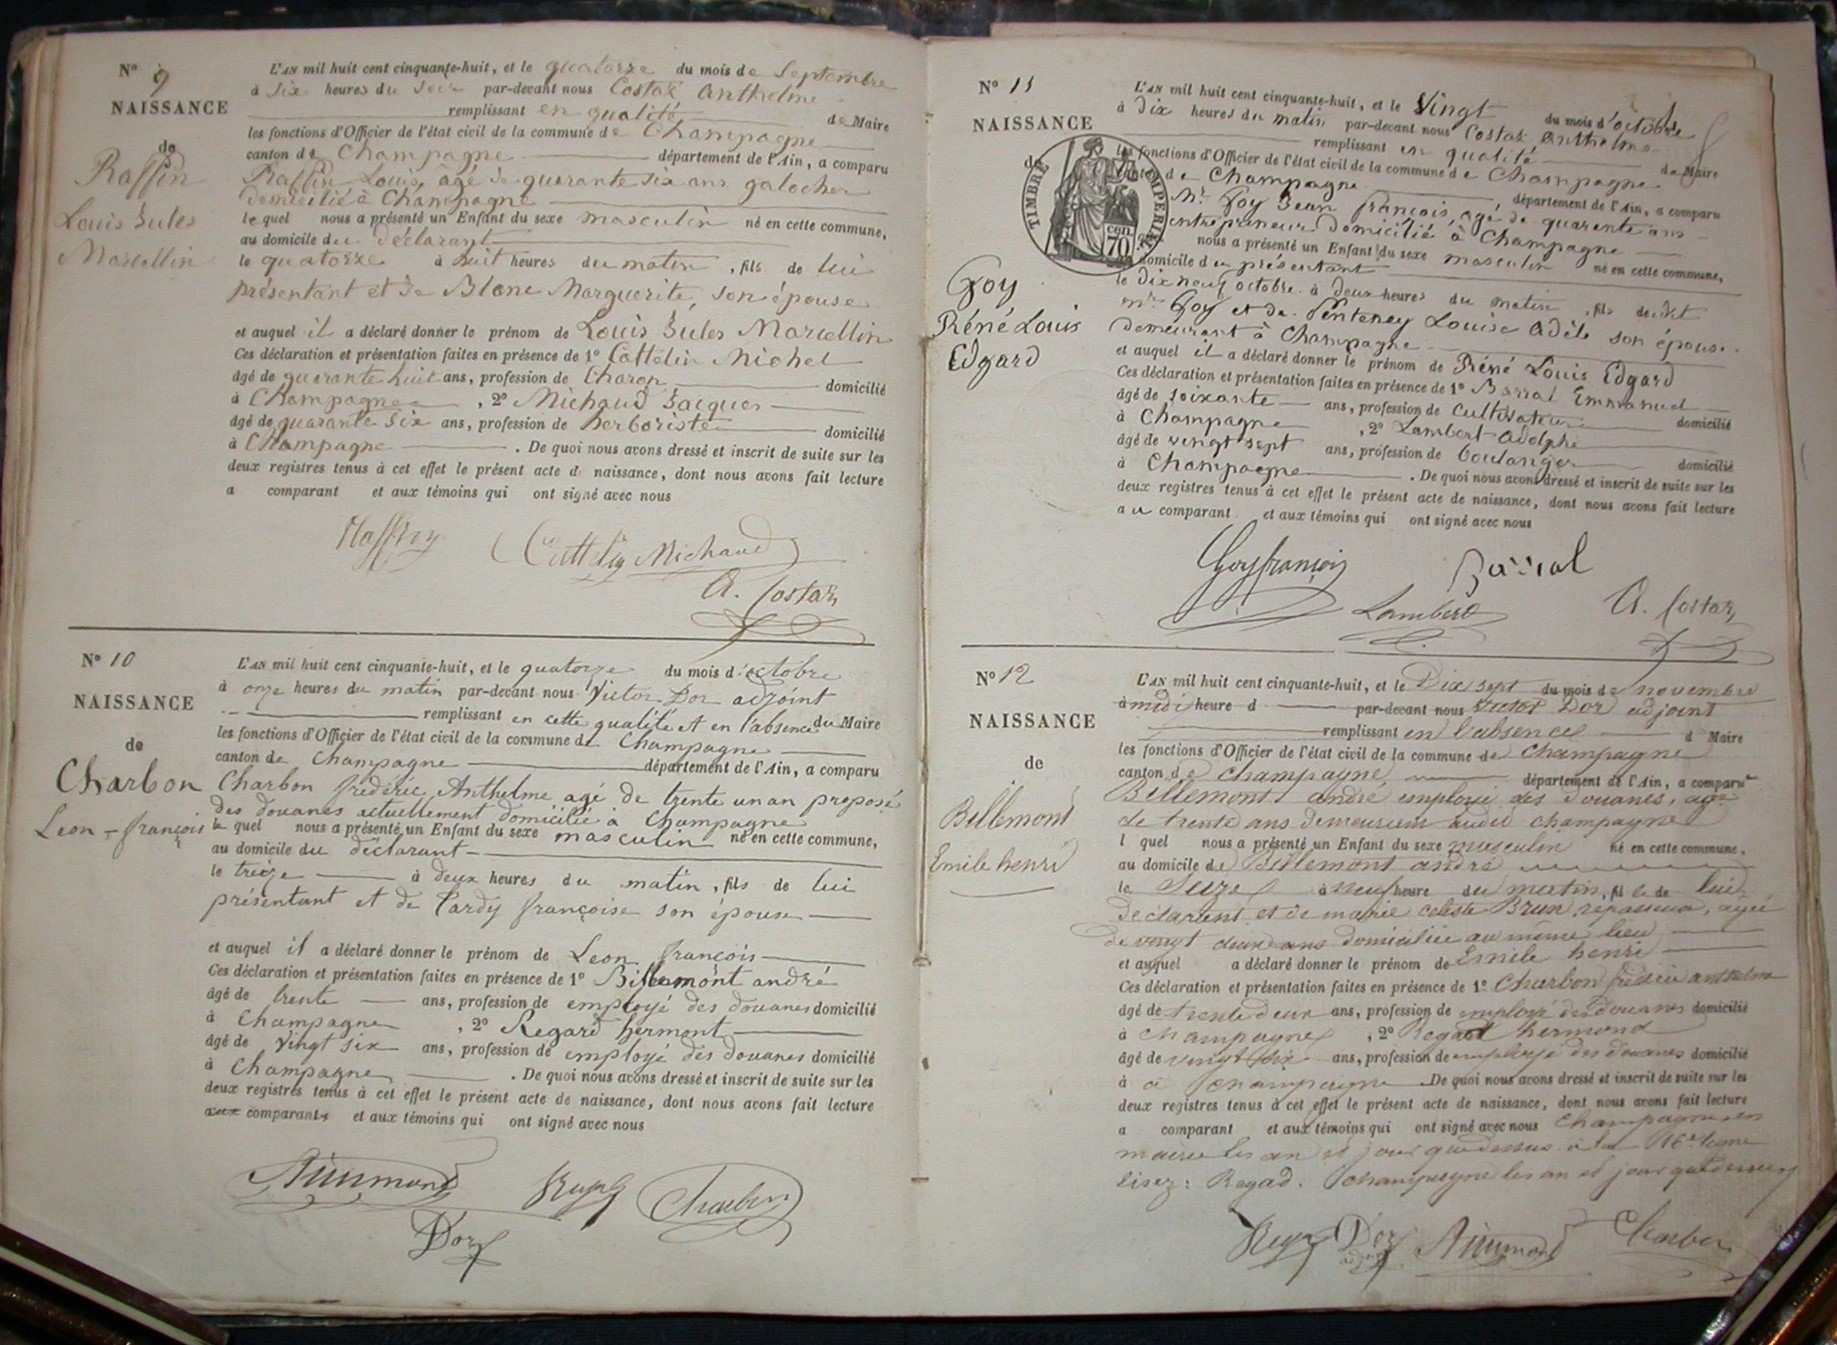 N° 9
NAISSANCE
de
Raffin
Louis Jules
Marcellin
L'AN mil huit cent cinquante-huit, et le quatorze du mois de Septembre
à Six heures du Soir par-devant nous Costaz Anthelme
remplissant en qualité de Maire
les fonctions d'Officier de l'état civil de la commune de Champagne
canton de Champagne département de l'Ain, a comparu
Raffin Louis, agé de quarante six ans galocher
domicilié à Champagne
le quel nous a présenté un Enfant du sexe masculin né en cette commune,
au domicile du déclarant
le quatorze à huit heures du matin, fils de lui
présentant et de Blanc Marguerite, son épouse
et auquel il a déclaré donner le prénom de Louis Jules Marcellin
Ces déclaration et présentation faites en présence de 1° Cattelin Michel
âgé de quarante huit ans, profession de Charon domicilié
à Champagne, 2° Michaud Jacques
âgé de quarante six ans, profession de herboriste domicilié
à Champagne. De quoi nous avons dressé et inscrit de suite sur les
deux registres tenus à cet effet le présent acte de naissance, dont nous avons fait lecture
a comparant et aux témoins qui ont signé avec nous
Raffin
Cattelin Michaud
A. Costaz
N° 10
NAISSANCE
de
Charbon
Leon-françois
L'AN mil huit cent cinquante-huit, et le quatorze du mois d'octobre
à onze heures du matin par-devant nous Victor Dor adjoint
remplissant en cette qualité et en l'absence du Maire
les fonctions d'Officier de l'état civil de la commune de Champagne
canton de Champagne département de l'Ain, a comparu
Charbon frédéric Anthelme agé de trente un an preposé
des douanes actuellement domicilié à Champagne
le quel nous a présenté un Enfant du sexe masculin né en cette commune,
au domicile du déclarant
le treize à deux heures du matin, fils de lui
présentant et de Tardy françoise son épouse
et auquel il a déclaré donner le prénom de Leon françois
Ces déclaration et présentation faites en présence de 1° Billemont andré
âgé de trente ans, profession de employé des douanes domicilié
à Champagne, 2° Regard hermont
âgé de vingt six ans, profession de employé des douanes domicilié
à Champagne. De quoi nous avons dressé et inscrit de suite sur les
deux registres tenus à cet effet le présent acte de naissance, dont nous avons fait lecture
aux comparants et aux témoins qui ont signé avec nous
Charbon
Dor
N° 11
NAISSANCE
de
TIMBRE IMPERIAL
70 cen
Goy
Réné Louis
Edgard
L'AN mil huit cent cinquante-huit, et le Vingt du mois d'octobre
à Dix heures du matin par-devant nous Costaz Anthelme
remplissant en qualité de Maire
les fonctions d'Officier de l'état civil de la commune de Champagne
canton de Champagne département de l'Ain, a comparu
Mr Goy Jean françois, agé de quarente ans
entrepreneur domicilié à Champagne
nous a présenté un Enfant du sexe masculin né en cette commune,
domicile du présentant
le dix neuf octobre à deux heures du matin, fils du dit
mr Goy et de Penteney Louise Adèle son épouse
demeurant à Champagne
et auquel il a déclaré donner le prénom de Réné Louis Edgard
Ces déclaration et présentation faites en présence de 1° Barral Emmanuel
âgé de soixante ans, profession de cultivateur domicilié
à Champagne, 2° Lambert Adolphe
âgé de vingt sept ans, profession de boulanger domicilié
à Champagne. De quoi nous avons dressé et inscrit de suite sur les
deux registres tenus à cet effet le présent acte de naissance, dont nous avons fait lecture
au comparant et aux témoins qui ont signé avec nous
Goy françois
Barral
Lambert
A. Costaz
N° 12
NAISSANCE
de
Billemont
Emile henri
L'AN mil huit cent cinquante-huit, et le Dix sept du mois de novembre
à midi heure d par-devant nous victor Dor adjoint
remplissant en l'absence d Maire
les fonctions d'Officier de l'état civil de la commune de Champagne
canton de Champagne département de l'Ain, a comparu
Billemont andré employé des Douanes, agé
de trente ans demeurant audit champagne
l quel nous a présenté un Enfant du sexe masculin né en cette commune,
au domicile de Billemont andré
le Seize à neuf heure du matin, fils de lui
déclarant et de marie celeste Brun repasseuse, agée
de vingt deux ans domiciliée au même lieu
et auquel a déclaré donner le prénom de Emile henri
Ces déclaration et présentation faites en présence de 1° Charbon frédéric anthelme
âgé de trente deux ans, profession de employé des douanes domicilié
à Champagne, 2° Regard hermond
âgé de vingt six ans, profession de employé des douanes domicilié
à a Champagne. De quoi nous avons dressé et inscrit de suite sur les
deux registres tenus à cet effet le présent acte de naissance, dont nous avons fait lecture
a comparant et aux témoins qui ont signé avec nous Champagne en
mairie les an et jour que dessus à la 16e ligne
lisez: Regad. Champagne les an et jour que dessus
Dor
Charbon